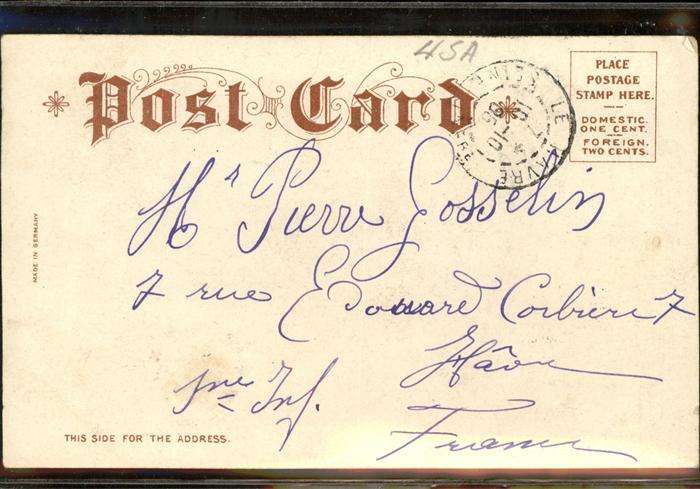 USA
Post Card
LE HAVRE
PLACE
POSTAGE
STAMP HERE.
DOMESTIC.
ONE CENT.
FOREIGN.
TWO CENTS.
Mr Pierre Gosselin
7 rue Edouard Corbière 7
Hâvre
Inf.
France
MADE IN GERMANY
THIS SIDE FOR THE ADDRESS.